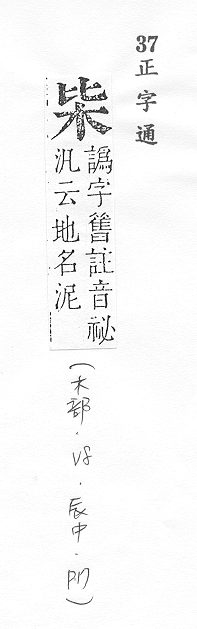 37 正字通
枈
譌字舊註音祕
汎云地名泥
(木部.V8.辰中.P17)